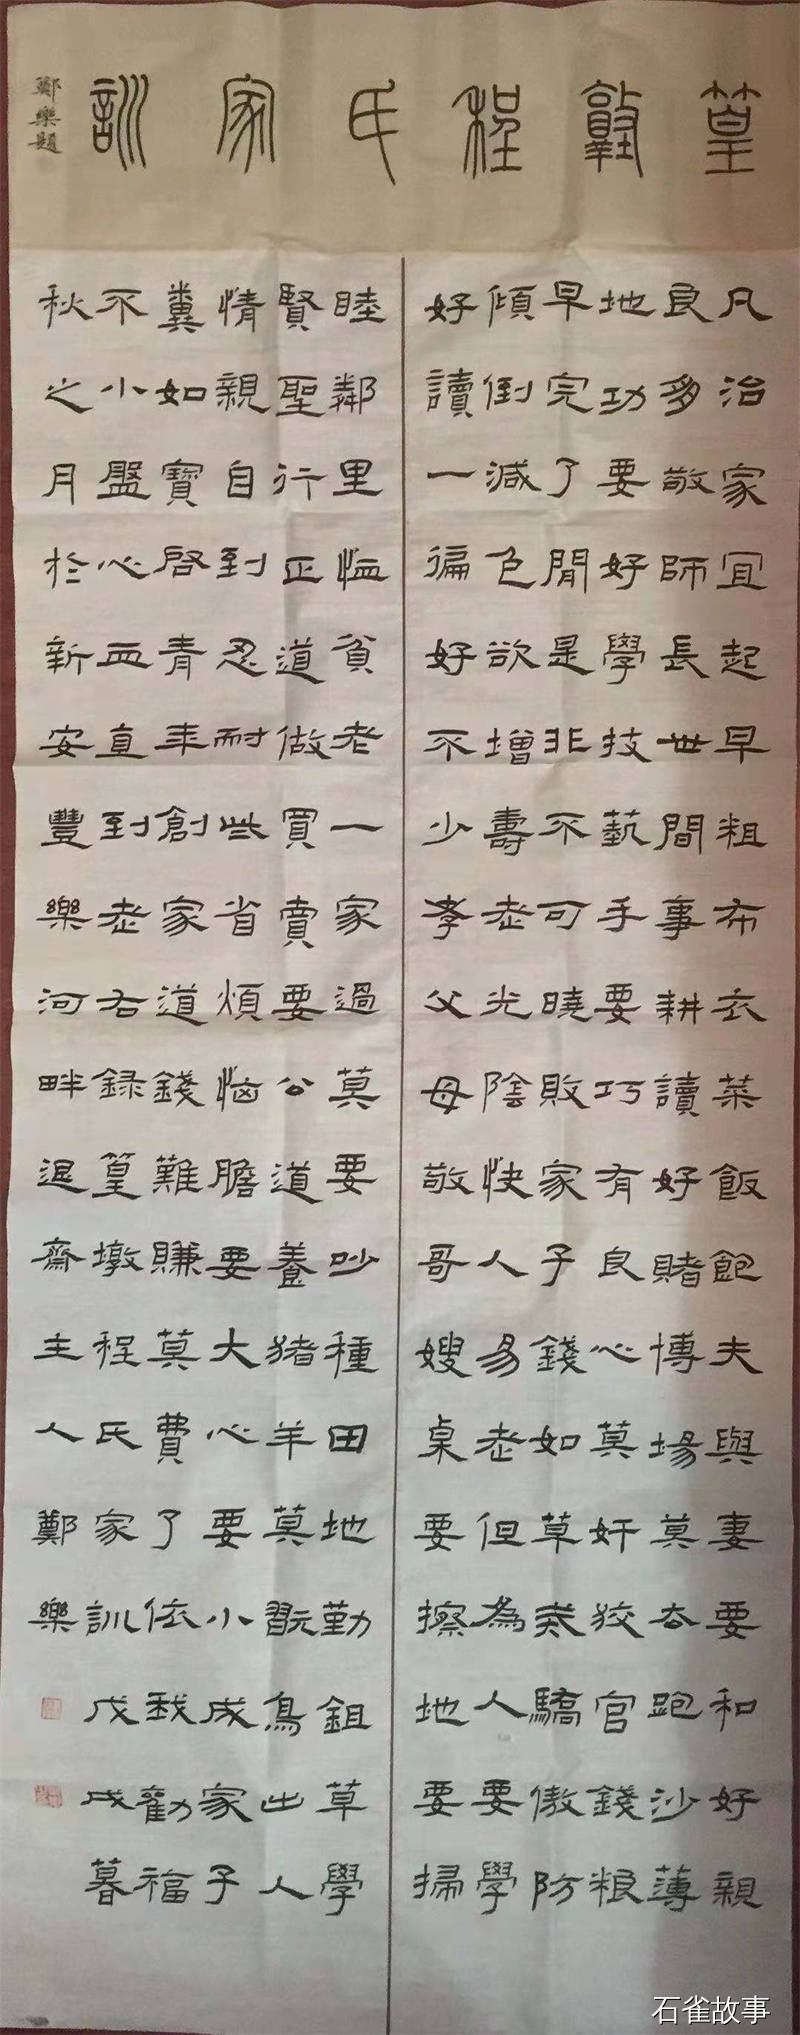 篁墩程氏家訓
鄭樂題
凡治家宜起早粗布衣菜飯飽夫與妻要和好親
良多敬師長世間事耕讀好賭博場莫去跑沙薄
地功要好學技藝手要巧有良心莫奸狡官錢粮
早完了閒是非不可曉敗家子錢如草驕傲防
傾倒減色欲增壽老光陰快人易老但為人要學
好讀一徧好不少孝父母敬哥嫂桌要擦地要掃
睦鄰里恤貧老一家過莫要吵種田地勤鉏草學
賢聖行正道做買賣要公道養猪羊莫翫鳥出人
情親自到忍耐些省煩惱膽要大心要小成家子
糞如寶啓青年創家道錢難賺莫費了依我勸福
不小盤心血直到老右録篁墩程氏家訓戊戌暮
秋之月於新安豐樂河畔退齋主人鄭樂
石雀故事